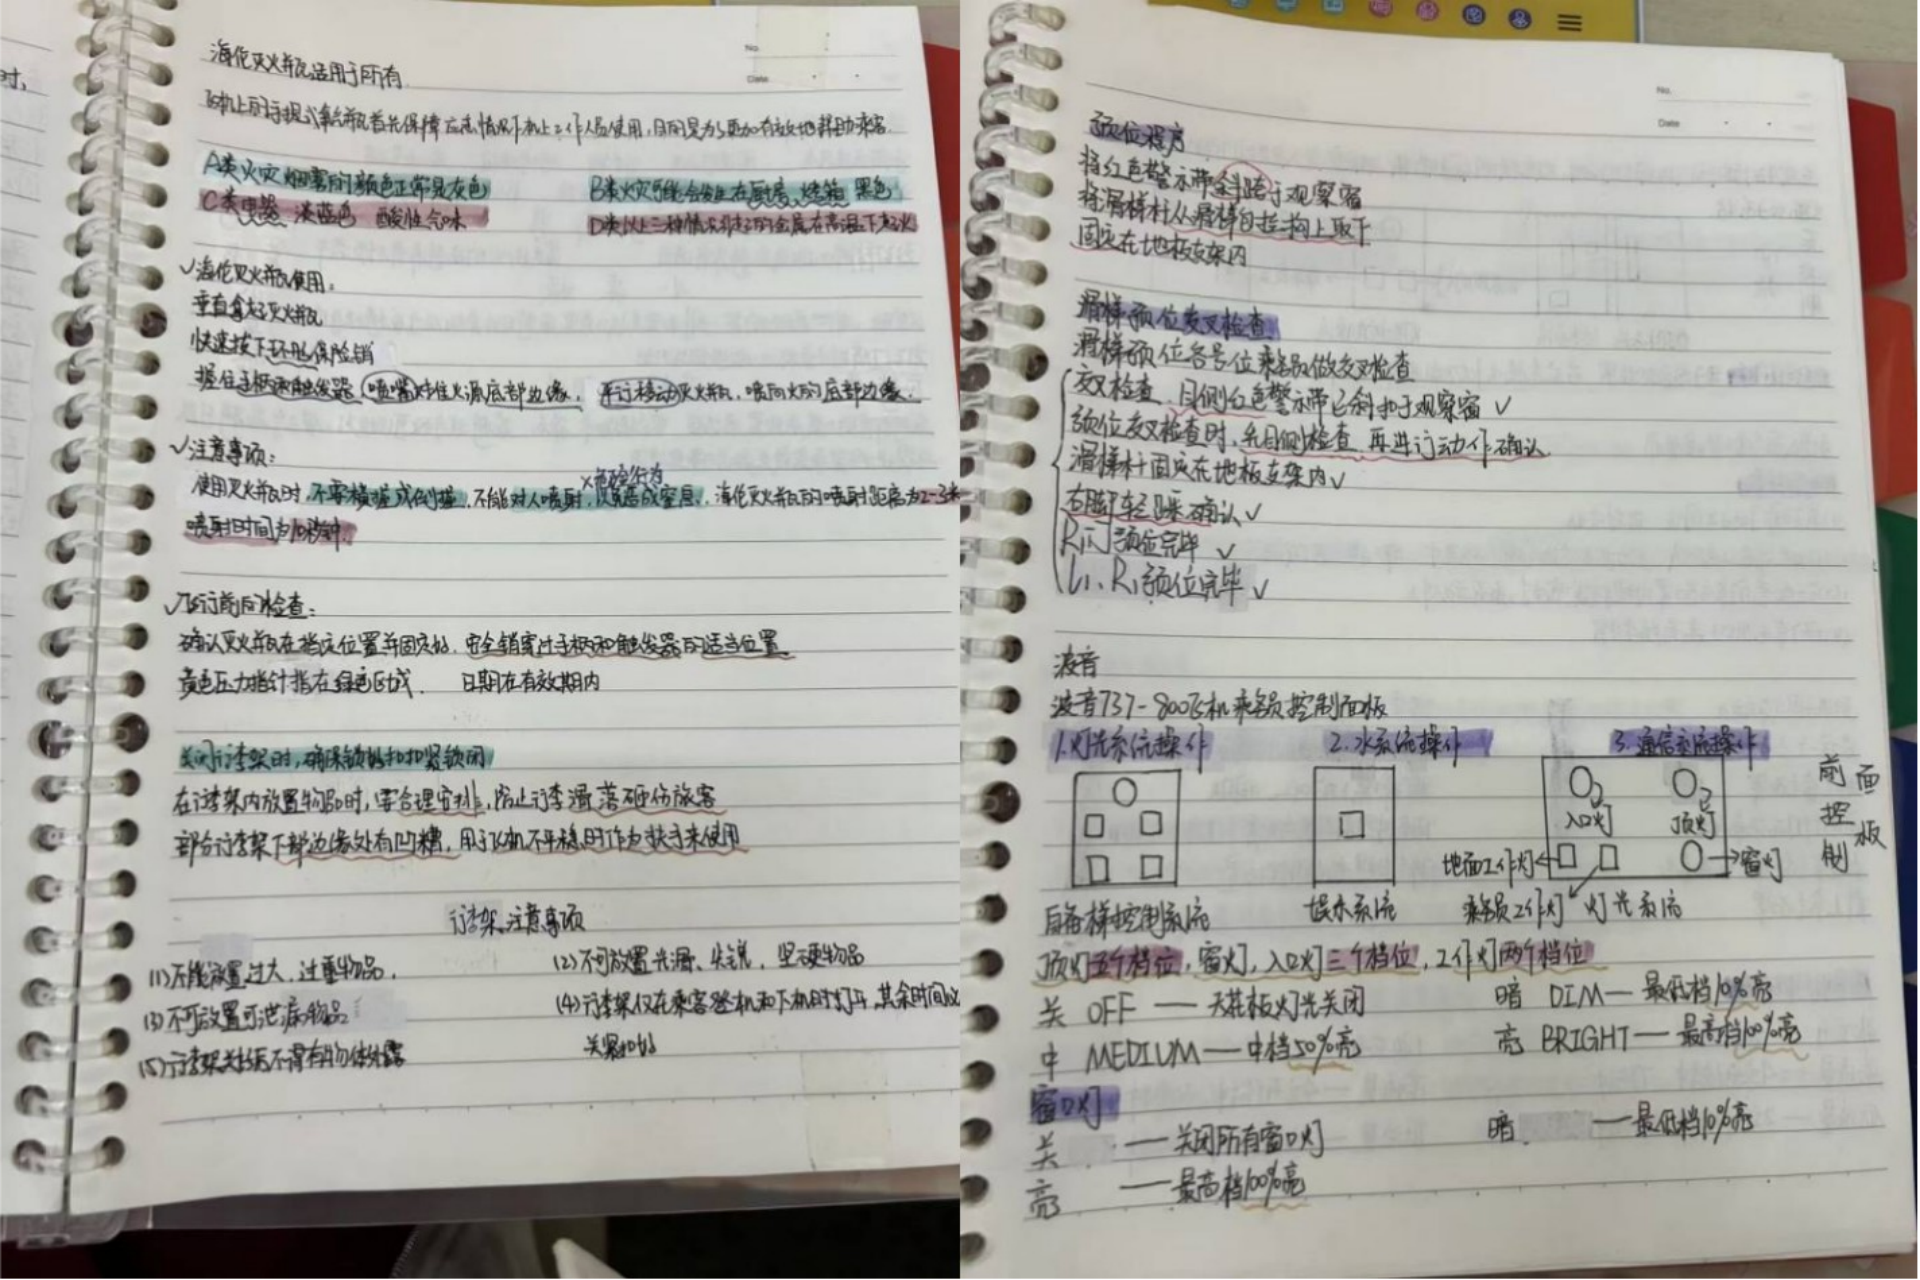 No.
Date
海伦灭火瓶适用于所有
飞机上的手提式氧气瓶首先保障应急情况下机上工作人员使用,目的是为了更加有效地帮助乘客.
A类火灾烟雾的颜色正常是灰色 B类火灾可能会发生在厨房、烤箱 黑色
C类电器 淡蓝色 酸性气味 D类以上三种情况引起的金属在高温下起火
✓海伦灭火瓶使用:
垂直拿起灭火瓶
快速按下环形保险销
握住手柄和触发器(喷嘴对准火源底部边缘, 平行移动灭火瓶,喷向火的底部边缘.
✓注意事项:
×危险行为
使用灭火瓶时,不要横握或倒握,不能对人喷射,以免造成窒息.海伦灭火瓶的喷射距离为2-3米
喷射时间为10秒钟.
✓飞行前的检查:
确认灭火瓶在指定位置并固定好,安全销穿过手柄和触发器的适当位置
黄色压力指针指在绿色区域. 日期在有效期内
关闭行李架时,确保锁好扣扣紧锁闭
在行李架内放置物品时,要合理安排,防止行李滑落砸伤旅客
部分行李架下部边缘处有凹槽,用于飞机不平稳时作为扶手来使用
行李架注意事项
(1)不能放置过大、过重物品. (2)不可放置光滑、尖锐、坚硬物品
(3)不可放置可泄漏物品 (4)行李架仅在乘客登机和下机时打开,其余时间必
关紧扣好
(5)行李架关好后不得有物体外露
No.
Date
预位程序
将红色警示带斜跨于观察窗
将滑梯杆从滑梯包挂钩上取下
固定在地板支架内
滑梯预位交叉检查
滑梯预位各号位乘务员做交叉检查
交叉检查,目侧红色警示带已斜扣于观察窗✓
预位交叉检查时,先目侧检查,再进行动作确认
滑梯杆固定在地板支架内✓
右脚轻踩确认✓
R1门预位完毕 ✓
L1、R1预位完毕✓
波音
波音737-800飞机乘务员控制面板
1.灯光系统操作 2.水系统操作 3.通信系统操作
前面控板制
入口灯 顶灯
地面工作灯 窗灯
自备梯控制系统 娱水系统 乘务员工作灯 灯光系统
顶灯五个档位,窗灯,入口灯三个档位,工作灯两个档位
关 OFF — 天花板灯光关闭 暗 DIM — 最低档10%亮
中 MEDIUM — 中档50%亮 亮 BRIGHT — 最高档100%亮
窗口灯
关 — 关闭所有窗口灯 暗 — 最低档10%亮
亮 — 最高档100%亮